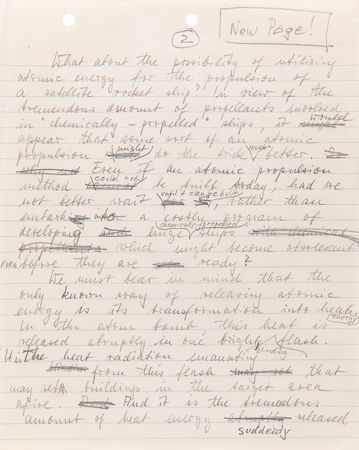 2
New Page!
What about the possibility of utilizing
atomic energy for the propulsion of
a satellite rocket ship? In view of the
tremendous amount of propellants involved
in "chemically-propelled" ships, it would
appear that some sort of an atomic
propulsion might do the trick much better.
Even if an atomic propulsion
method could not be built today, had we
not better wait until it can be built, rather than
embark on a costly program of
developing huge chemically propelled ships
which might become obsolescent
even before they are ready?
We must bear in mind that the
only known way of releasing atomic
energy is its transformation into heat energy.
In the atom bomb this heat is
released abruptly in one bright blinding flash.
It is the heat radiation emanating
from this flash that
may set buildings in the target area
afire. And it is the tremendous
amount of heat energy suddenly released